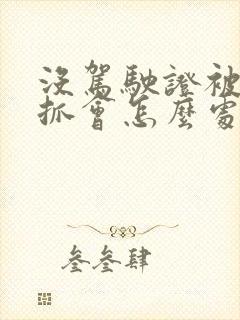 沒駕駛證被
抓會怎麼處
叁叁肆